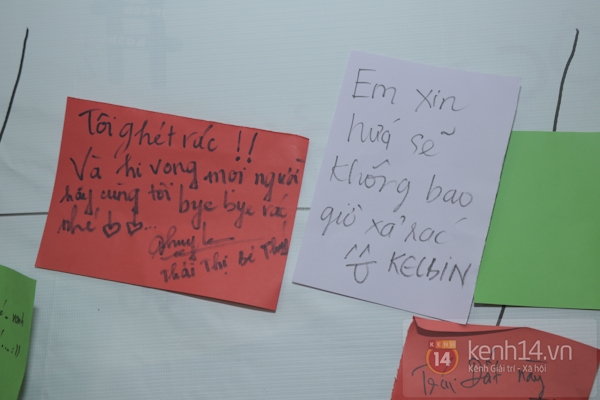 Tôi ghét rác !!
Và hi vọng mọi người
hãy cùng tôi bye bye rác
nhé ♡♡...
Thái Thị bé
Em xin
hứá sẽ
không bao
giờ xả rác
KELBIN
Trái Đất này
KENH
14
kenh14.vn
Kênh Giải trí - Xã hội